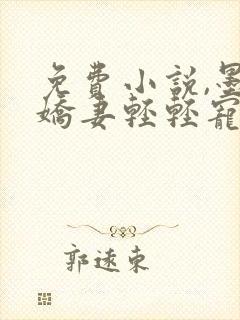 免費小說,墨
嬌妻輕輕寵
郭遠東